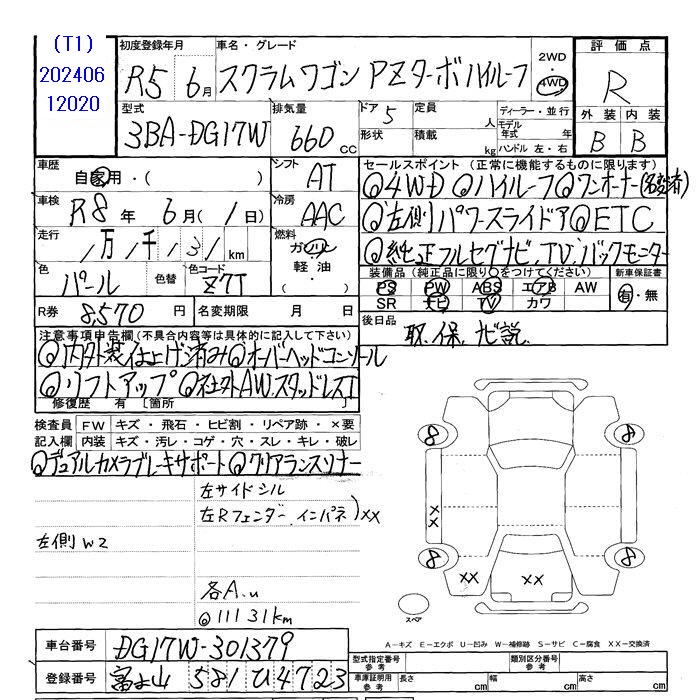 (T1)
202406
12020
初度登録年月
R5 6月
車名・グレード
スクラムワゴン PZターボハイルーフ
2WD
・
4WD
評価点
R
外装 内装
B B
型式
3BA-DG17W
排気量
660 cc
ドア 5
形状
定員 人
積載 kg
ディーラー・並行
モデル年式 年
ハンドル 左・右
車歴
自家用・( )
シフト
AT
車検
R8年 6月( 1日)
冷房
AAC
走行
1万 1千 131 km
燃料
ガソリン
軽油・
( )
色
パール
色替
色コード
Z7T
R券 8,570 円
名変期限 月 日
セールスポイント(正常に機能するものに限ります)
◎4WD ◎ハイルーフ ◎ワンオーナー(名変済)
◎左側パワースライドア ◎ETC
◎純正フルセグナビ、TV、バックモニター
装備品(純正品に限り○をつけてください)
新車保証書
PS PW ABS エアB AW
SR ナビ TV カワ
有・無
後日品
取、保、ナビ説
注意事項申告欄(不具合内容等は具体的に記入して下さい)
◎内外装仕上げ済み ◎オーバーヘッドコンソール
◎リフトアップ ◎社外AW、スタッドレス
修復歴 有 [箇所
検査員記入欄
FW キズ・飛石・ヒビ割・リペア跡・×要
内装 キズ・汚レ・コゲ・穴・スレ・キレ・破レ
◎デュアルカメラブレーキサポート ◎クリアランスソナー
左サイドシル
左Rフェンダー、インパネ)××
左側W2
各A.u
◎11131km
8 8
××
8 8
×× ××
スペア
A-キズ E-エクボ U-凹み W-補修跡 S-サビ C-腐食 XX-交換済
車台番号
DG17W-301379
登録番号
富山 581 ひ 4723
型式指定番号 参考
類別区分番号 参考
車庫証明用 参考
長さ cm
幅 cm
高さ cm